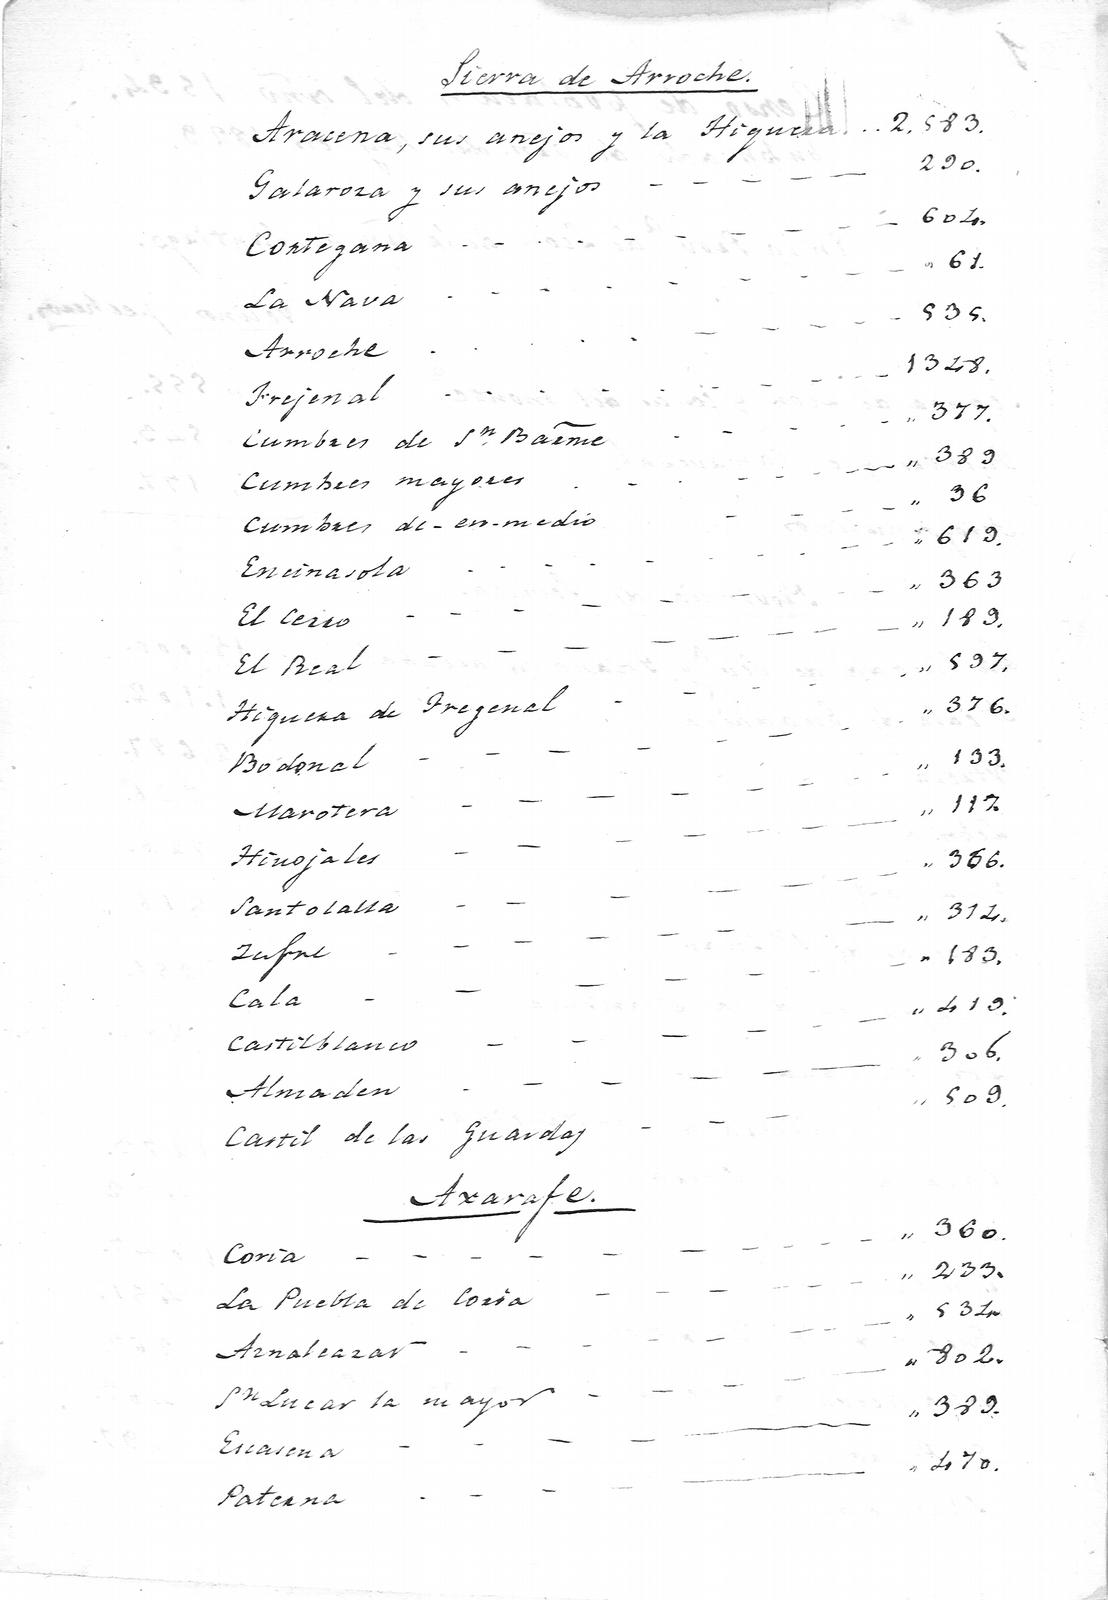 Sierra de Arroche.
Aracena, sus anejos y la Higuera... 2.583.
Galaroza y sus anejos - - - - 290.
Cortegana - - - - - - - 604.
La Nava - - - - - - - „ 61.
Arroche - - - - - - 535.
Frejenal - - - - - - 1348.
Cumbres de Sn. Bañme - - - - „ 377.
Cumbres mayores - - - - - „ 389
Cumbres de-en-medio - - - - „ 36
Encinasola - - - - - - „ 619.
El Cerro - - - - - - „ 363
El Real - - - - - - „ 189.
Higuera de Fregenal - - - - „ 597.
Bodonal - - - - - - „ 376.
Marotera - - - - - - „ 133.
Hinojales - - - - - - „ 117
Santolalla - - - - - - „ 366.
Zufre - - - - - - „ 314.
Cala - - - - - - „ 183.
Castilblanco - - - - - „ 419.
Almaden - - - - - - „ 306.
Castil de las Guardas - - - „ 509.
Axarafe.
Coria - - - - - - - „ 360.
La Puebla de Coria - - - - „ 233.
Aznalcazar - - - - - „ 534
Sn Lucar la mayor - - - - „ 802.
Escasena - - - - - „ 389.
Paterna - - - - - „ 470.